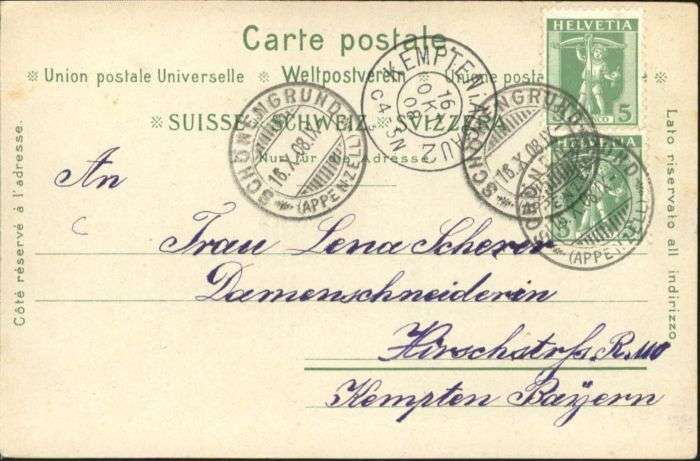 Carte postale
Union postale Universelle Weltpostverein Unione postale
SUISSE SCHWEIZ SVIZZERA
Nur für die Adresse.
Côté réservé à l'adresse.
Lato riservato all indirizzo
HELVETIA
5
5
SCHÖNENGRUND
16.X.08.
(APPENZELL)
KEMPTEN
16
OKT
08
SCHÖNENGRUND
16.X.08.
(APPENZELL)
An
Frau Lena Scherer
Damenschneiderin
Hirschstrß R
Kempten Bayern